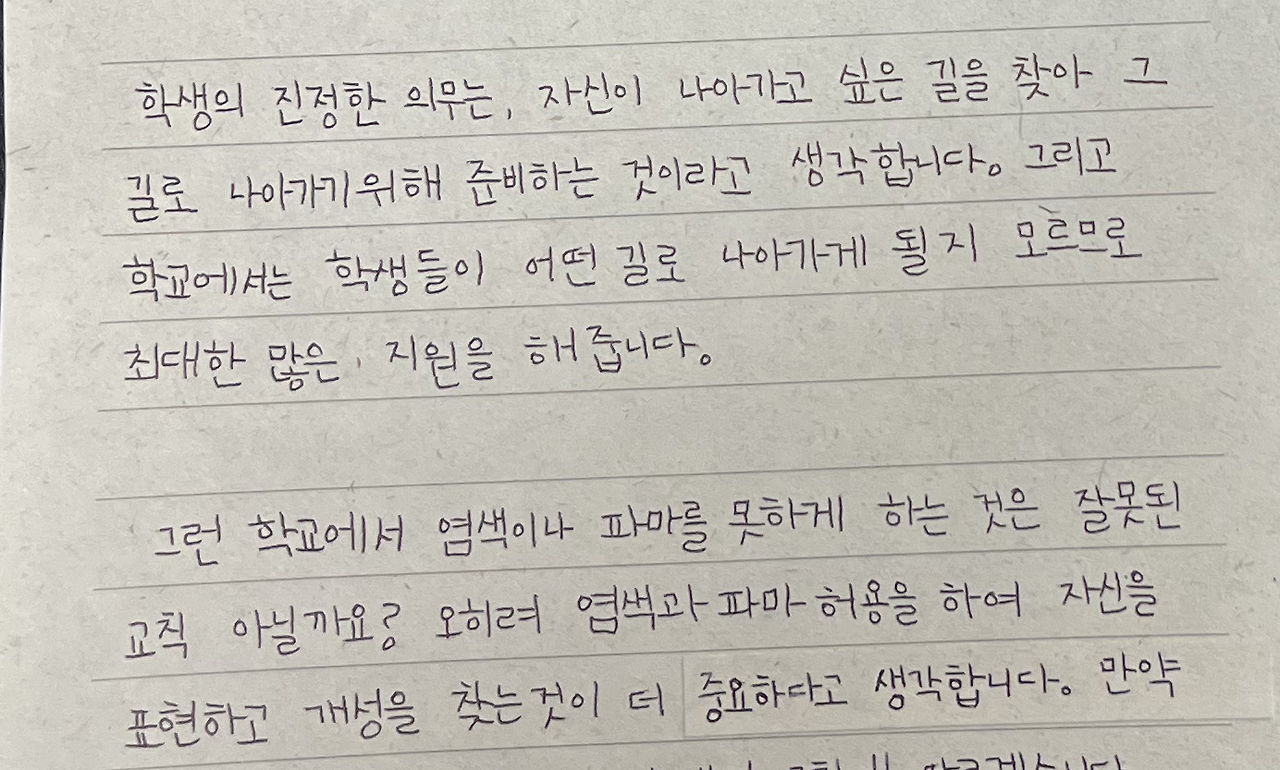 학생의 진정한 의무는, 자신이 나아가고 싶은 길을 찾아 그
길로 나아가기위해 준비하는 것이라고 생각합니다. 그리고
학교에서는 학생들이 어떤 길로 나아가게 될지 모르므로
최대한 많은 지원을 해줍니다.
그런 학교에서 염색이나 파마를 못하게 하는 것은 잘못된
교칙 아닐까요? 오히려 염색과 파마 허용을 하여 자신을
표현하고 개성을 찾는것이 더 중요하다고 생각합니다. 만약